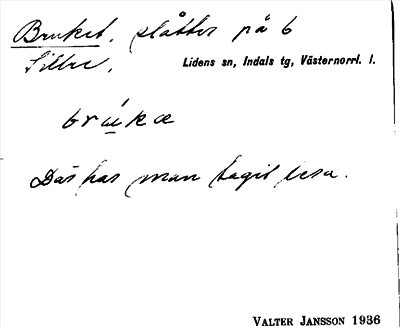 Bruket. slåtter på 6
Sillre.
Lidens sn, Indals tg, Västernorrl. l.
brúkæ
Där har man tagit lera.
VALTER JANSSON 1936